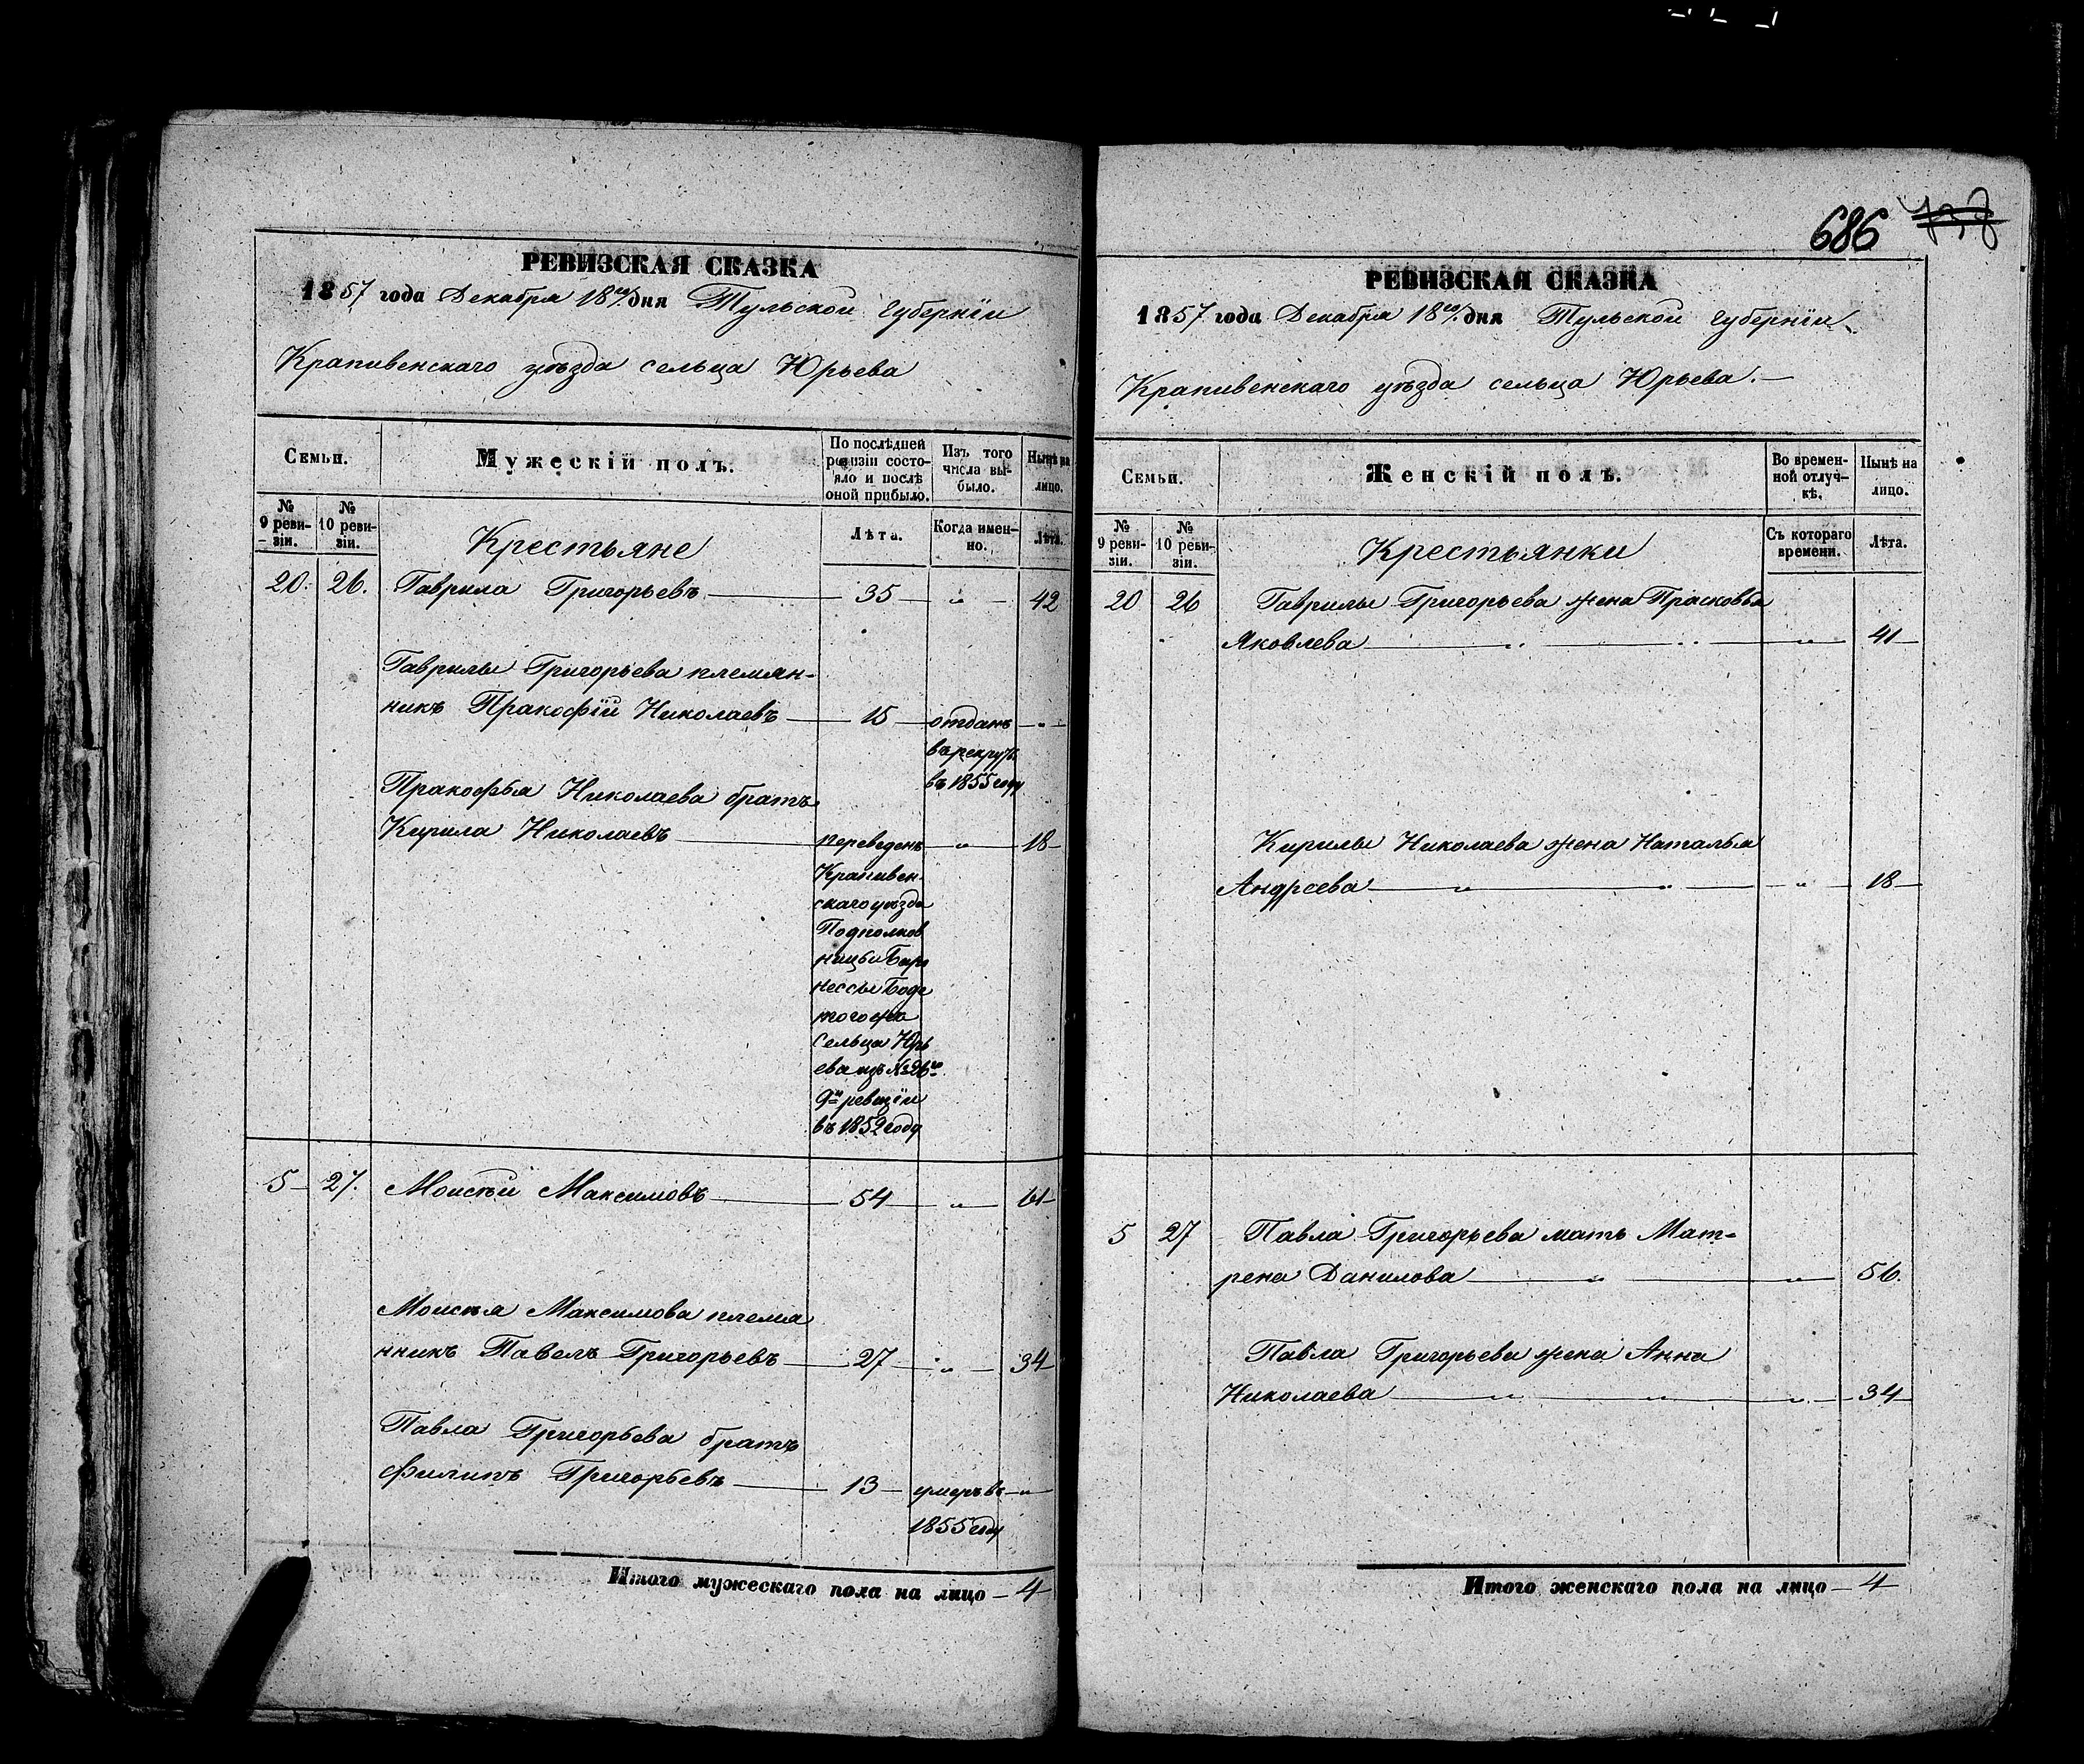 РЕВИЗСКАЯ СКАЗКА
1857 года Декабря 18го дня Тульской губерніи
Крапивенскаго уѣзда сельца Юрьева
Семьи.
Мужескій полъ.
По послѣдней ревизіи состо-
яло и послѣ
оной прибыло.
Изъ того
числа вы-
было.
Нынѣ на
лицо.
№
9 реви-
зіи.
№
10 реви-
зіи.
Крестьяне
Лѣта.
Когда имен-
но.
Лѣта.
20. 26. Гаврила Григорьевъ — 35 — „ — 42
Гаврилы Григорьева племян-
никъ Пракофій Николаевъ — 15 — отданъ — „ —
въ рекруты
въ 1855 году
Пракофья Николаева братъ
Кирила Николаевъ — переведенъ — „ — 18
Крапивен-
скаго уѣзда
Подполков
ницы Баро
нессы Боде
сельца Юрь
ева изъ № 26го
9й ревизіи
въ 1852 году
5 27. Моисѣй Максимовъ — 54 — „ — 61
Моисѣя Максимова племя
нникъ Павелъ Григорьевъ — 27 — „ — 34
Павла Григорьева братъ
Филипъ Григорьевъ — 13 — умеръ въ — „
1855 году
Итого мужескаго пола на лицо — 4
686
РЕВИЗСКАЯ СКАЗКА
1857 года Декабря 18го дня Тульской губерніи
Крапивенскаго уѣзда сельца Юрьева. —
Семьи.
Женскій полъ.
Во времен-
ной отлуч-
кѣ.
Нынѣ на
лицо.
№
9 реви-
зіи.
№
10 реви-
зіи.
Крестьянки
Съ котораго
времени.
Лѣта.
20 26 Гаврилы Григорьева жена Прасковья
Яковлева — „ — „ — „ — 41
Кирилы Николаева жена Наталья
Андреева — „ — „ — „ — 18
5 27 Павла Григорьева мать Мат-
рена Данилова — „ — „ — 56.
Павла Григорьева жена Анна
Николаева — „ — „ — „ — 34
Итого женскаго пола на лицо — 4